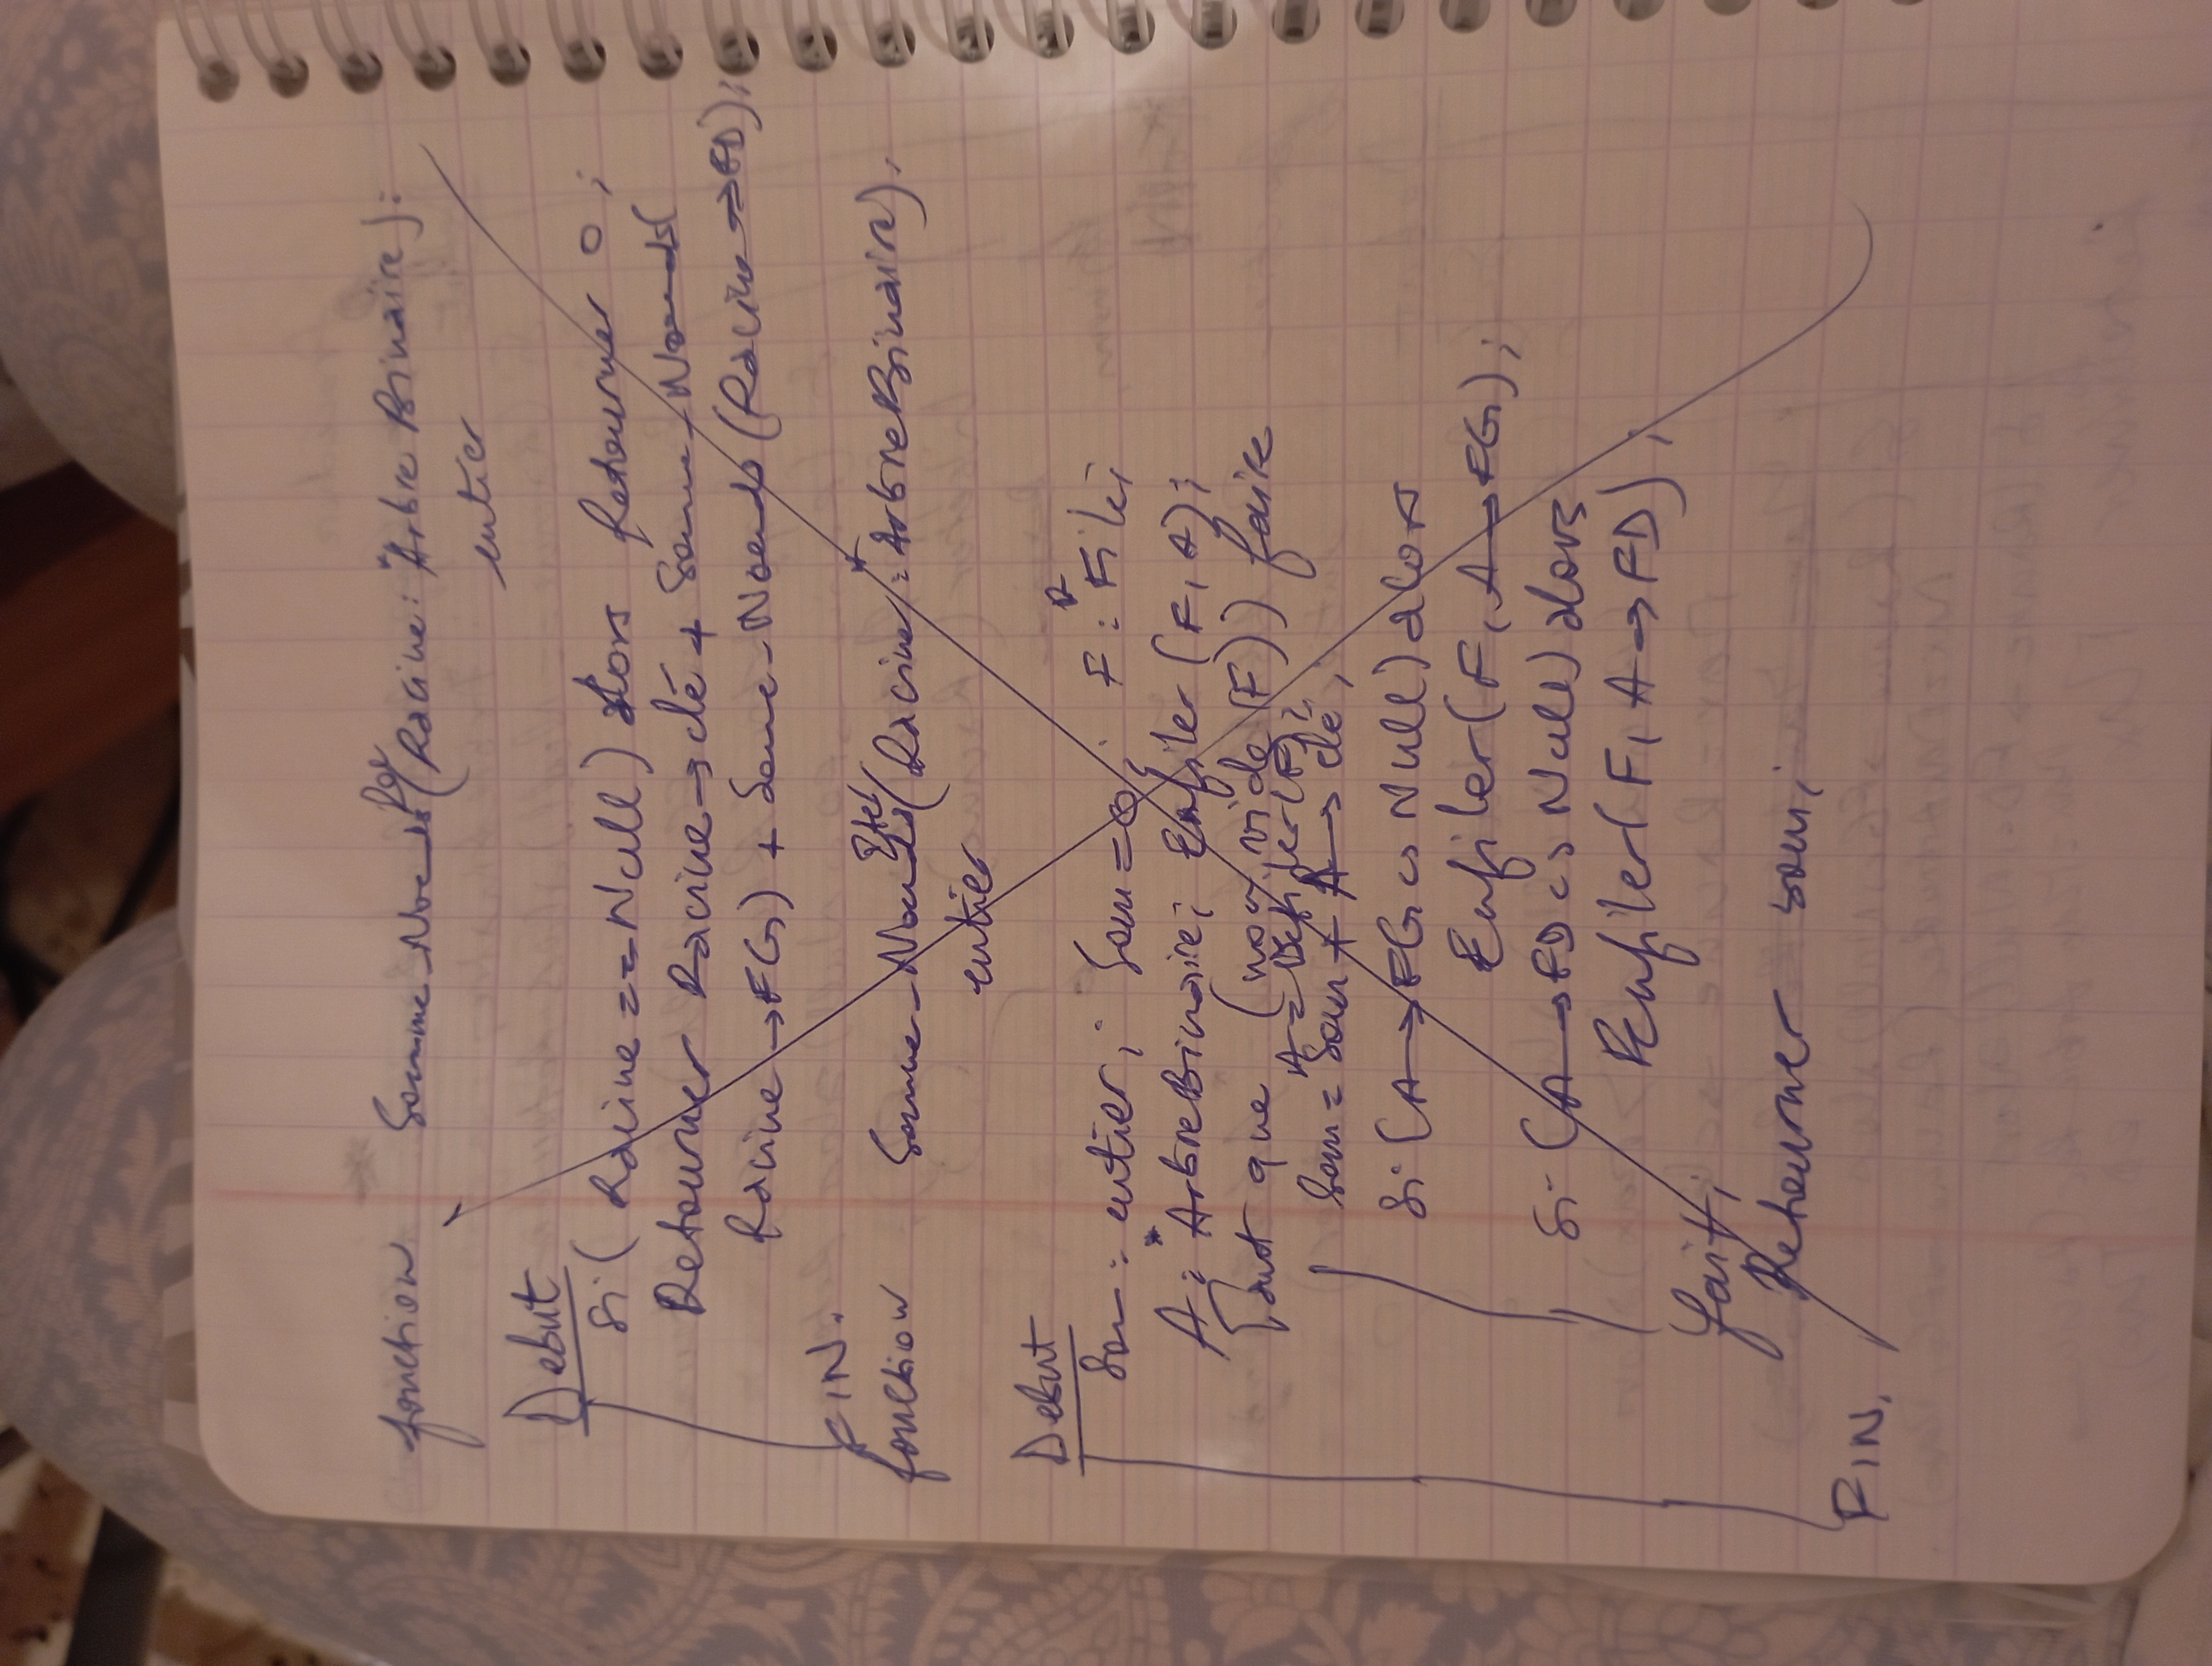 fonction Somme_Noeuds Rec (Racine: *Arbre Binaire):
entier
Debut
Si (Racine == Null) alors Retourner 0;
Retourner Racine→clé + Somme_Noeuds(
Racine→FG) + Somme_Noeuds(Racine→FD);
FIN.
fonction Somme_Noeuds Itel (Racine: *ArbreBinaire):
entier
Debut
Som: entier; Som = 0; F: *File;
A: *ArbreBinaire; Enfiler(F, A);
Tant que (non vide(F)) faire
A = Defiler(F);
Som = Som + A→clé;
Si (A→FG <> Null) alors
Enfiler(F, A→FG);
Si (A→FD <> Null) alors
Enfiler(F, A→FD);
fait;
Retourner som;
FIN.